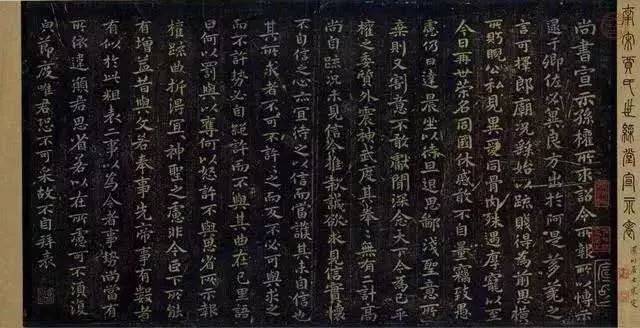 南宋賈氏世綵堂宣示表
尚書宣示孫權所求詔令所報所以博示
逮于卿佐必冀良方出於阿是芻蕘之
言可擇郎廟況繇始以疏賤得為前恩橫
所眄睨公私見異愛同骨肉殊遇厚寵以至
今日再世榮名同國休慼敢不自量竊致愚
慮仍日達晨坐以待旦退思鄙淺聖意所
棄則又割意不敢獻聞深念天下今為已平
權之委質外震神武度其拳拳無有二計高
尚自疏況未見信今推款誠欲求見信實懷
不自信之心亦宜待之以信而當護其未自信也
其所求者不可不許許之而反不必可與求之
而不許勢必自絕許而不與其曲在己里語
曰何以罰與以奪何以怒許不與思省所示報
權疏曲折得宜宜神聖之慮非今臣下所能
有增益昔與文若奉事先帝事有數者
有似於此粗表二事以為今者事勢尚當有
所依違願君思省若以在所慮可不須復
貌節度唯君恐不可采故不自拜表